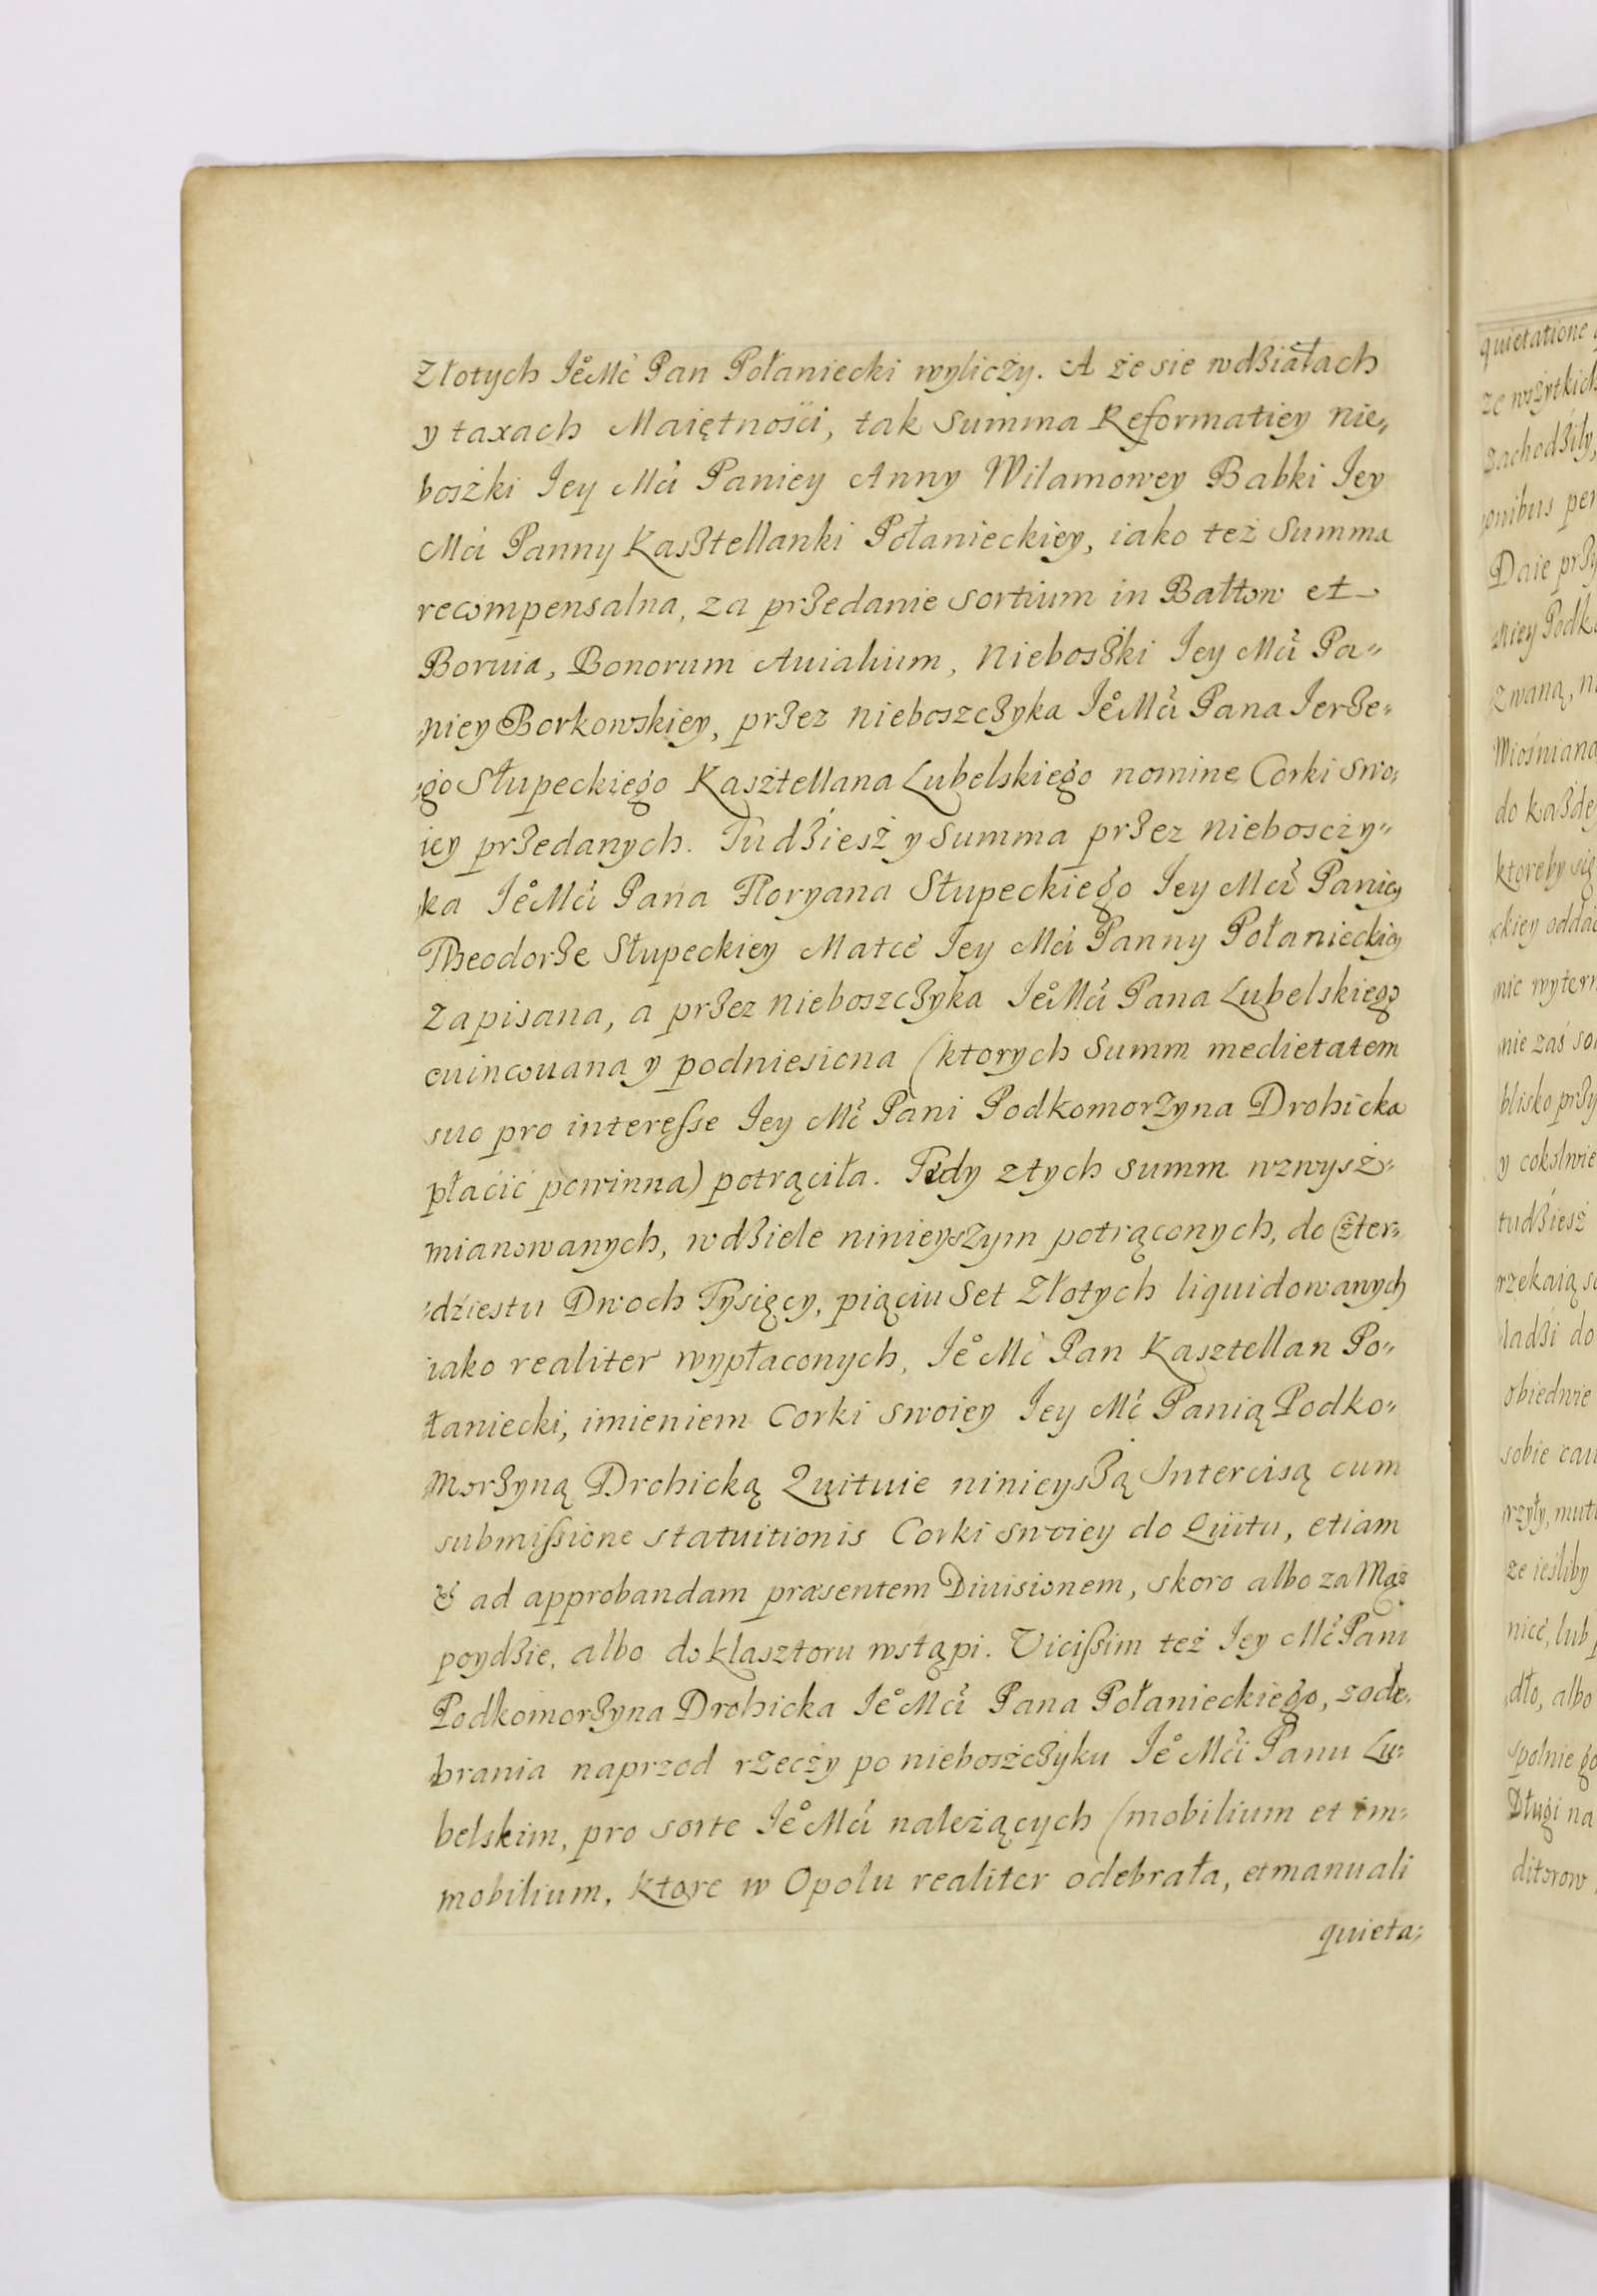 Złotych JeͦMć Pan Połaniecki wyliczy. A że sie wdziałach
y taxach Maiętnośći, tak Summa Reformatiey nie,,
boszki Jey Mći Paniey Anny Wilamowey Babki Jey
Mći Panny Kasztellanki Połanieckiey, iako też Summa
recompensalna, za przedanie sortium in Bałtow et
Boruia, Bonorum Auialium, Nieboszki Jey Mći Pa,,
niey Borkowskiey, przez nieboszczyka JeͦMći Pana Jerze,,
go Słupeckiego Kasztellana Lubelskiego nomine Corki swo,,
iey przedanych. Tudziesz y Summa przez niebosczy,,
ka JeͦMći Pana Floryana Słupeckiego Jey Mći Paniey
Theodorze Słupeckiey Matce Jey Mći Panny Połanieckiey
zapisana, a przez nieboszczyka JeͦMći Pana Lubelskiego
euincouana y podniesiona (ktorych Summ medietatem
suo pro interesse Jey Mć Pani Podkomorzyna Drohicka
płaćić powinna) potrąciła. Tedy ztych summ wzwysz,,
mianowanych, wdziele ninieyszym potrąconych, do Czter,,
dźiestu Dwoch Tysięcy, piąciu Set Złotych liquidowanych
iako realiter wypłaconych, Jeͦ Mć Pan Kasztellan Po,,
łaniecki, imieniem Corki swoiey Jey Mć Panią Podko,,
morzyną Drohicką Quituie ninieyszą Intercisą cum
submissione statuitionis Corki swoiey do Quitu, etiam
& ad approbandam præsentem Diuisionem, skoro albo za Mąż
poydzie, albo do klasztoru wstąpi. Vicissim też Jey Mć Pani
Podkomorzyna Drohicka JeͦMći Pana Połanieckiego, zode,,
brania naprzod rzeczy po nieboszczyku JeͦMći Panu Lu,,
belskim, pro sorte JeͦMći należących (mobilium et im,,
mobilium, ktore w Opolu realiter odebrała, et manuali
quieta,,
quietatione
ze wszytkich
zachodziły,
onibus per
Daie przy
niey Podk
zwaną, n
Wiosniana
do każde
ktoreby się
ckiey oddać
nie wyter
nie zaś so
blisko przy
y cokolwie
tudziesz
rzekaią s
ladzi do
obiedwie
sobie cau
rzyły, mut
ze iesliby
nieć, lub
dło, albo
spolnie go
Długi na
ditorow